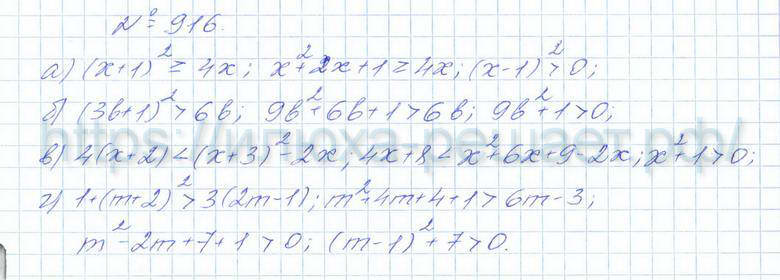 № 916.
а) (x+1)² ≥ 4x; x²+2x+1 ≥ 4x; (x-1)² > 0;
б) (3b+1)² > 6b; 9b²+6b+1 > 6b; 9b²+1 > 0;
в) 4(x+2) < (x+3)² - 2x; 4x+8 < x²+6x+9-2x; x²+1 > 0;
г) 1+(m+2)² > 3(2m-1); m²+4m+4+1 > 6m-3;
m²-2m+7+1 > 0; (m-1)²+7 > 0.
https://илюха-решает.рф/